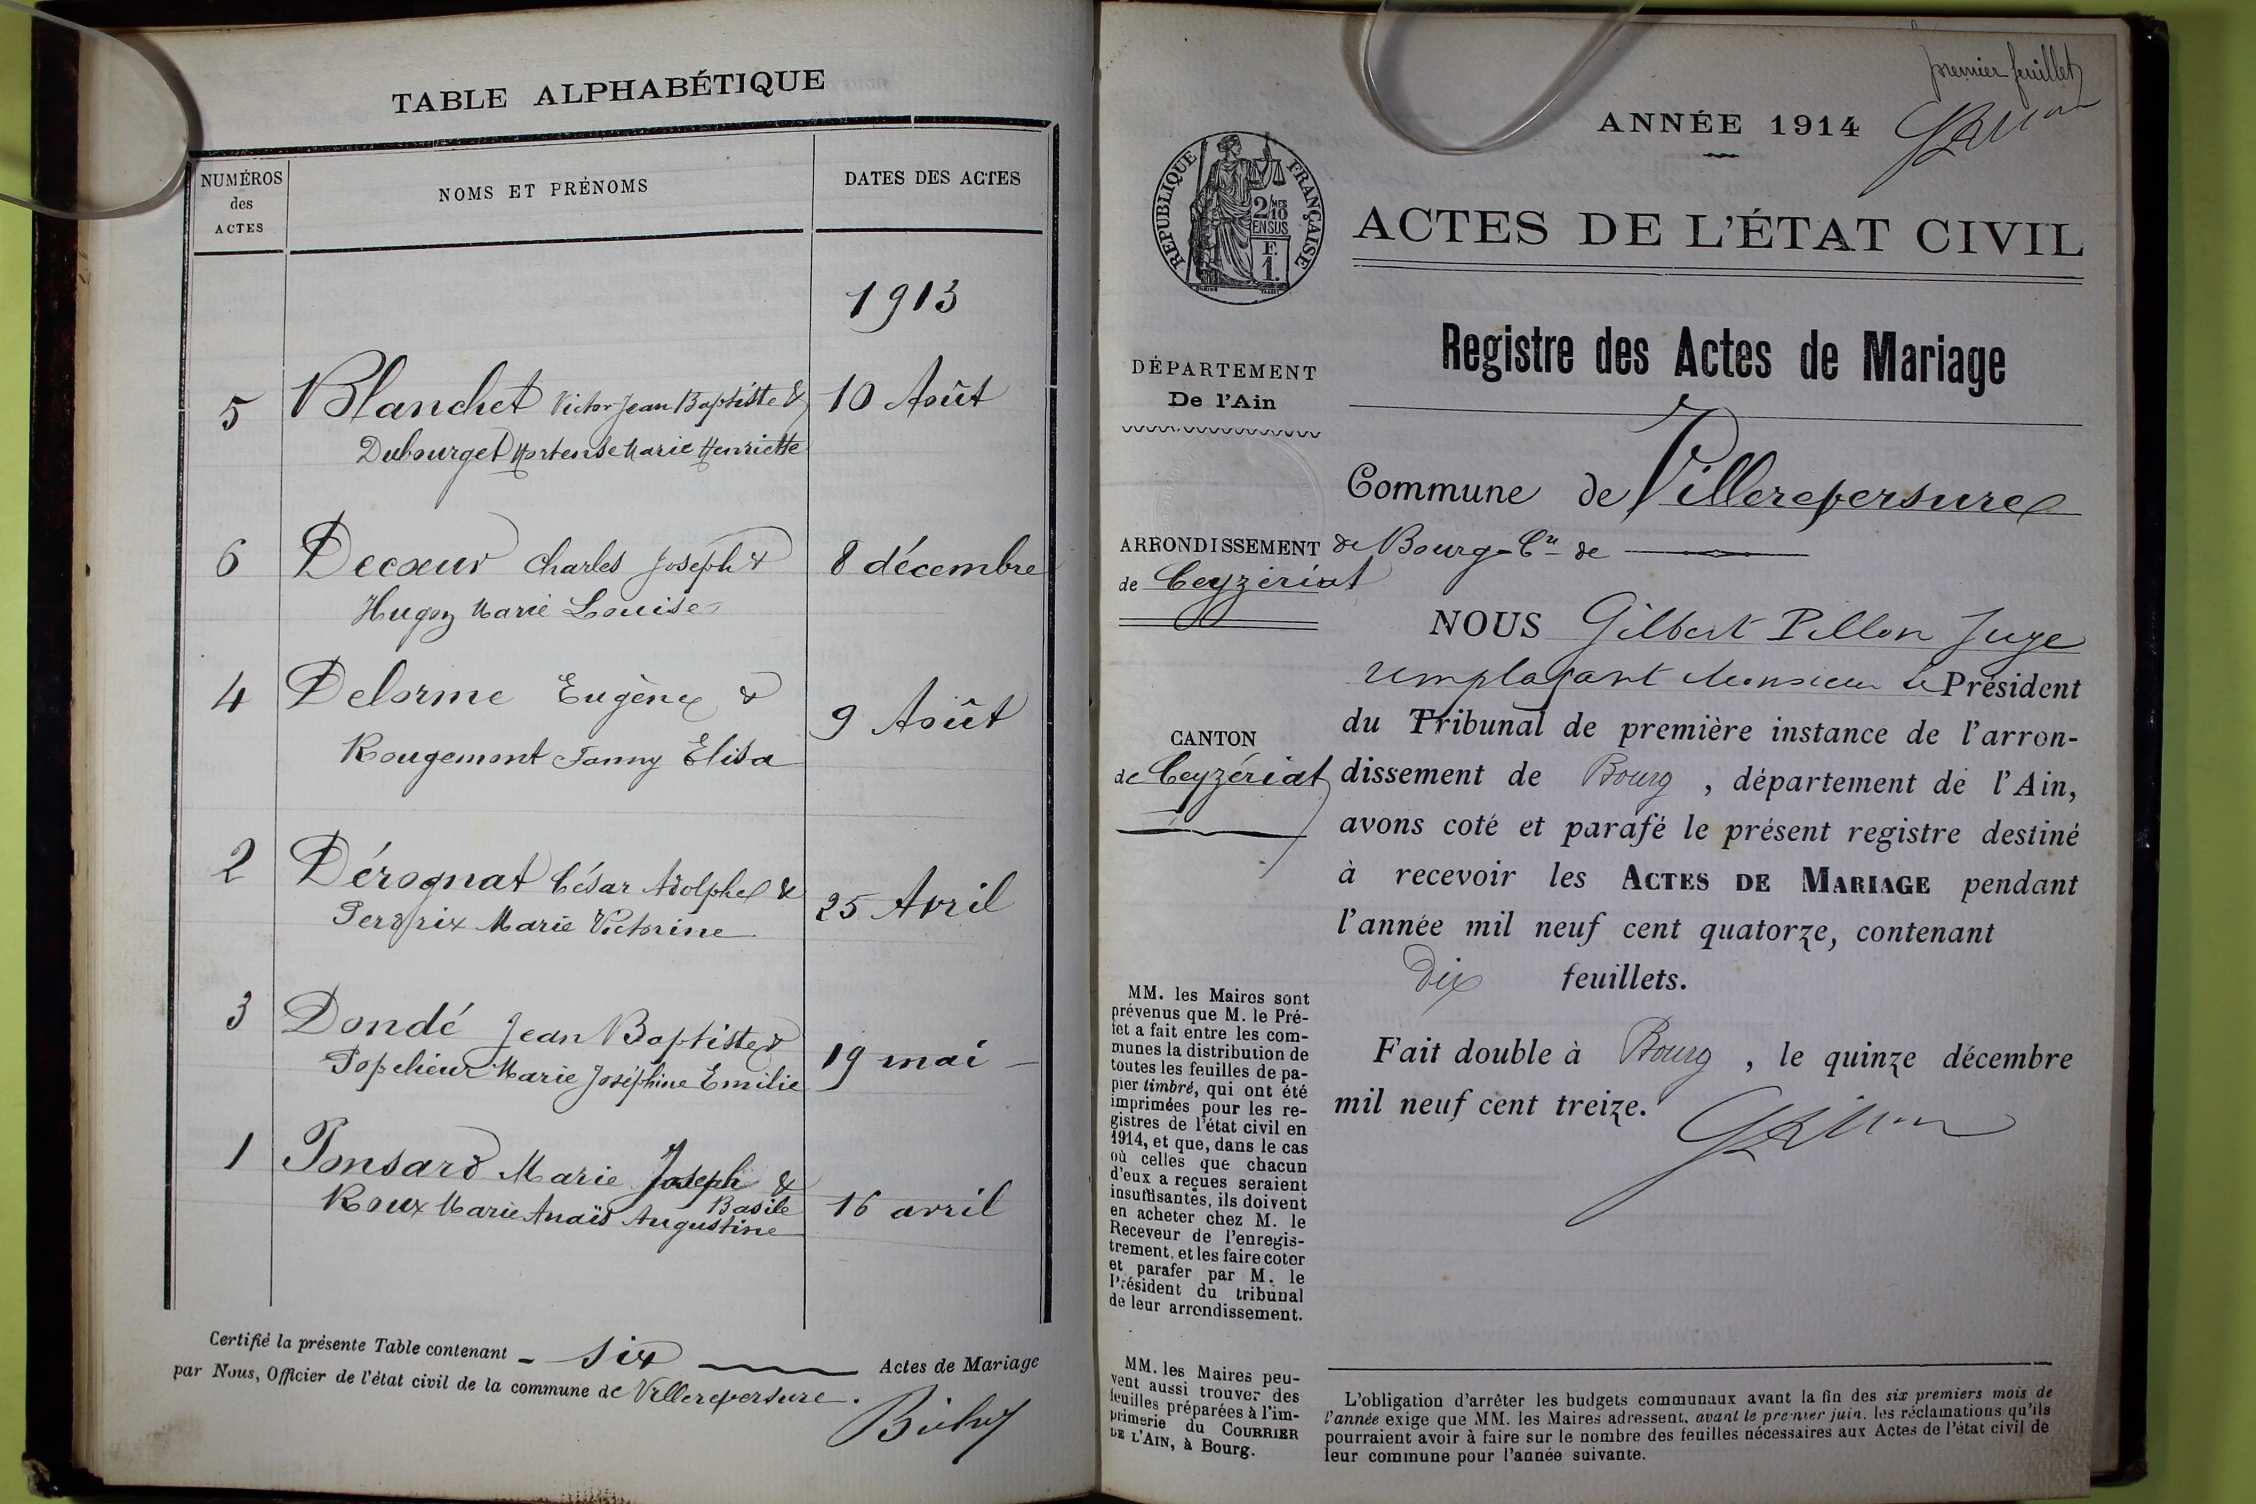 TABLE ALPHABÉTIQUE
NUMÉROS
des
ACTES
NOMS ET PRÉNOMS
DATES DES ACTES
1913
5 Blanchet Victor Jean Baptiste & 10 Août
Dubourget Hortense Marie Henriette
6 Decœur Charles Joseph & 8 décembre
Hugon Marie Louise
4 Delorme Eugène & 9 Août
Rougemont Fanny Elisa
2 Dérognat César Adolphe & 25 Avril
Perdrix Marie Victorine
3 Dondé Jean Baptiste & 19 mai
Marie Joséphine Emilie
1 Ponsard Marie Joseph & 16 avril
Basile
Roux Marie Anaïs Augustine
Certifié la présente Table contenant six Actes de Mariage
par Nous, Officier de l'état civil de la commune de Villereversure.
premier feuillet
ANNÉE 1914
RÉPUBLIQUE FRANÇAISE
2/10 MES
EN SUS
F.
1.
ACTES DE L'ÉTAT CIVIL
Registre des Actes de Mariage
DÉPARTEMENT
De l'Ain
Commune de Villereversure
ARRONDISSEMENT de Bourg - Cn de
de Ceyzériat
CANTON
de Ceyzériat
NOUS Gilbert Pillon Juge
remplaçant Monsieur le Président
du Tribunal de première instance de l'arron-
dissement de Bourg, département de l'Ain,
avons coté et parafé le présent registre destiné
à recevoir les ACTES DE MARIAGE pendant
l'année mil neuf cent quatorze, contenant
Dix feuillets.
Fait double à Bourg, le quinze décembre
mil neuf cent treize.
MM. les Maires sont
prévenus que M. le Pré-
fet a fait entre les com-
munes la distribution de
toutes les feuilles de pa-
pier timbré, qui ont été
imprimées pour les re-
gistres de l'état civil en
1914, et que, dans le cas
où celles que chacun
d'eux a reçues seraient
insuffisantes, ils doivent
en acheter chez M. le
Receveur de l'enregis-
trement, et les faire coter
et parafer par M. le
Président du tribunal
de leur arrondissement.
MM. les Maires peu-
vent aussi trouver des
feuilles préparées à l'im-
primerie du COURRIER
DE L'AIN, à Bourg.
L'obligation d'arrêter les budgets communaux avant la fin des six premiers mois de
l'année exige que MM. les Maires adressent, avant le premier juin, les réclamations qu'ils
pourraient avoir à faire sur le nombre des feuilles nécessaires aux Actes de l'état civil de
leur commune pour l'année suivante.